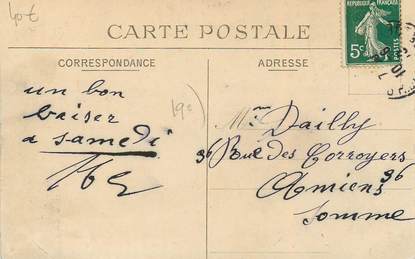 40€
CARTE POSTALE
RÉPUBLIQUE FRANÇAISE
5c
CORRESPONDANCE
ADRESSE
un bon
baiser
a samedi
Dailly
96 Rue des Corroyers 96
Amiens
Somme